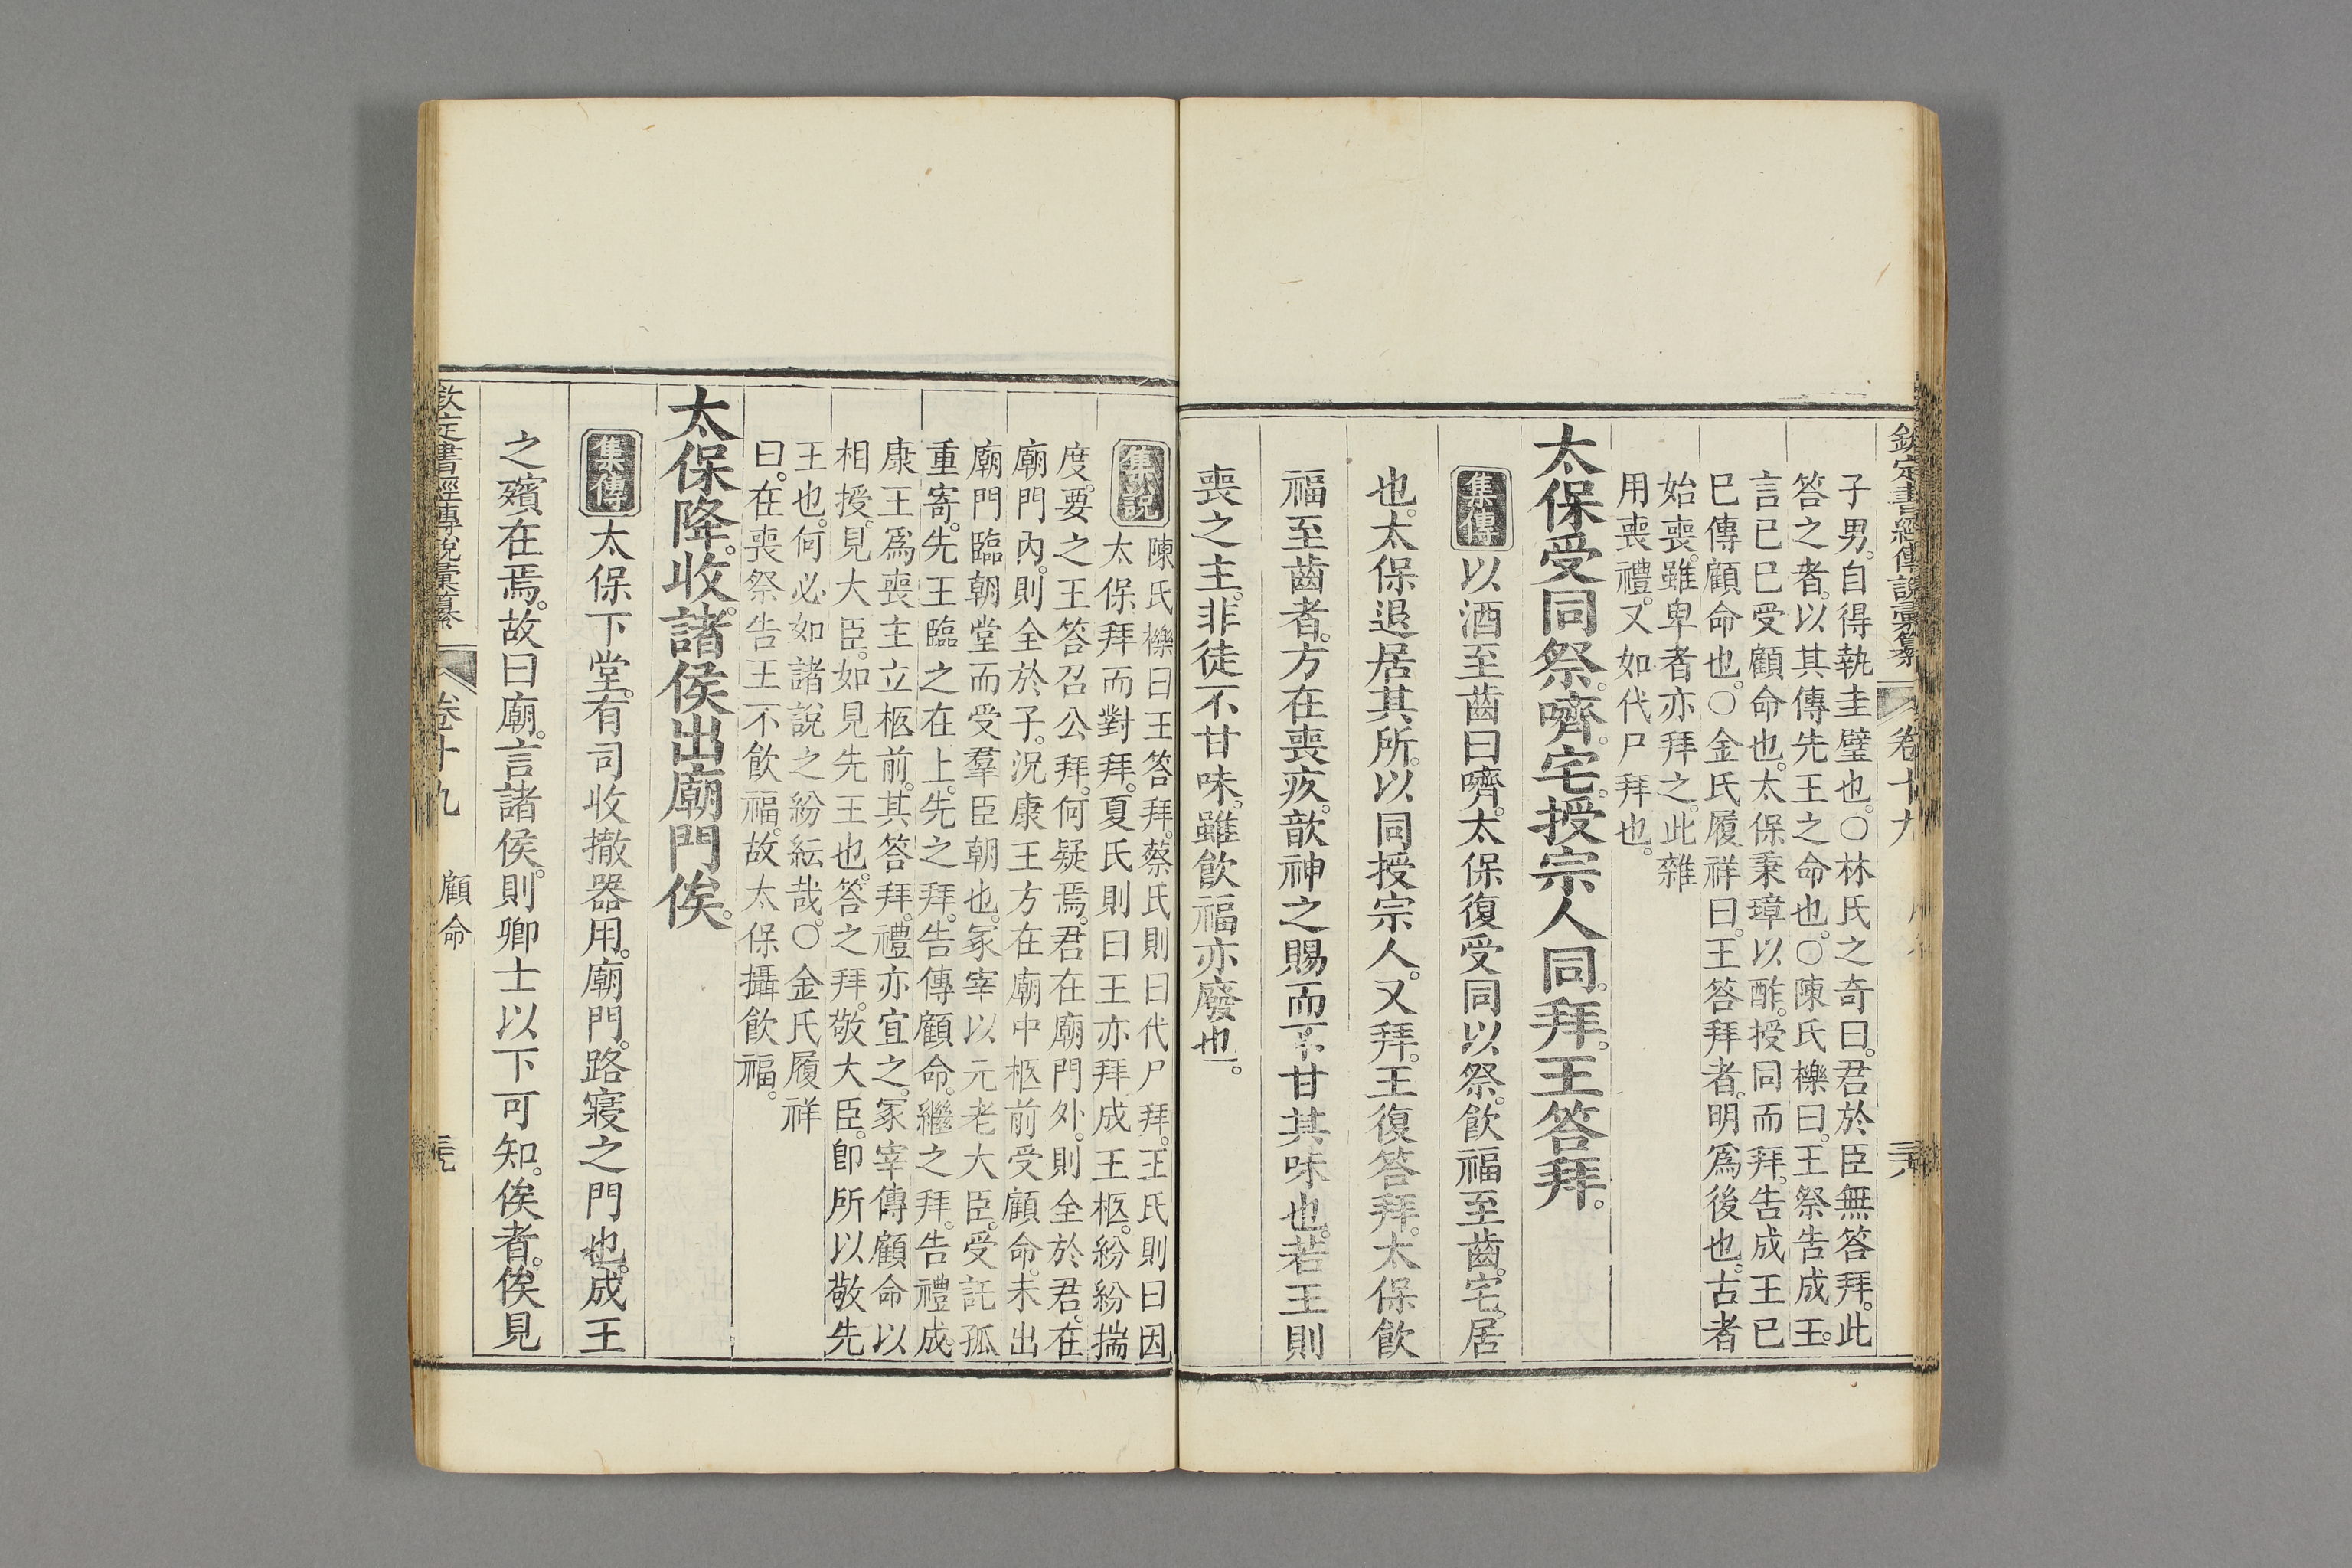 欽定書經傳說彙纂 卷十九 三六
子男。自得執圭璧也。○林氏之奇曰。君於臣無答拜。此
答之者。以其傳先王之命也。○陳氏櫟曰。王祭告成王。
言已已受顧命也。太保秉璋以酢。授同而拜。告成王已
已傳顧命也。○金氏履祥曰。王答拜者。明爲後也。古者
始喪。雖卑者亦拜之。此雜
用喪禮。又如代尸拜也。
太保受同祭。嚌。宅。授宗人同。拜。王答拜。
集傳 以酒至齒曰嚌。太保復受同以祭。飲福至齒。宅。居
也。太保退居其所。以同授宗人。又拜。王復答拜。太保飲
福至齒者。方在喪疚。歆神之賜而不甘其味也。若王則
喪之主。非徒不甘味。雖飲福亦廢也。
集說 陳氏櫟曰王答拜。蔡氏則曰代尸拜。王氏則曰因
太保拜而對拜。夏氏則曰王亦拜成王柩。紛紛揣
度。要之王答召公拜。何疑焉。君在廟門外。則全於君。在
廟門內。則全於子。況康王方在廟中柩前受顧命。未出
廟門臨朝堂而受羣臣朝也。冢宰以元老大臣。受託孤
重寄。先王臨之在上。先之拜。告傳顧命。繼之拜。告禮成。
康王爲喪主立柩前。其答拜。禮亦宜之。冢宰傳顧命以
相授。見大臣。如見先王也。答之拜。敬大臣。卽所以敬先
王也。何必如諸說之紛紜哉。○金氏履祥
曰。在喪祭告王不飲福。故太保攝飲福。
太保降。收。諸侯出廟門俟。
集傳 太保下堂。有司收撤器用。廟門。路寢之門也。成王
之殯在焉。故曰廟。言諸侯。則卿士以下可知。俟者。俟見
欽定書經傳說彙纂 卷十九 顧命 三七